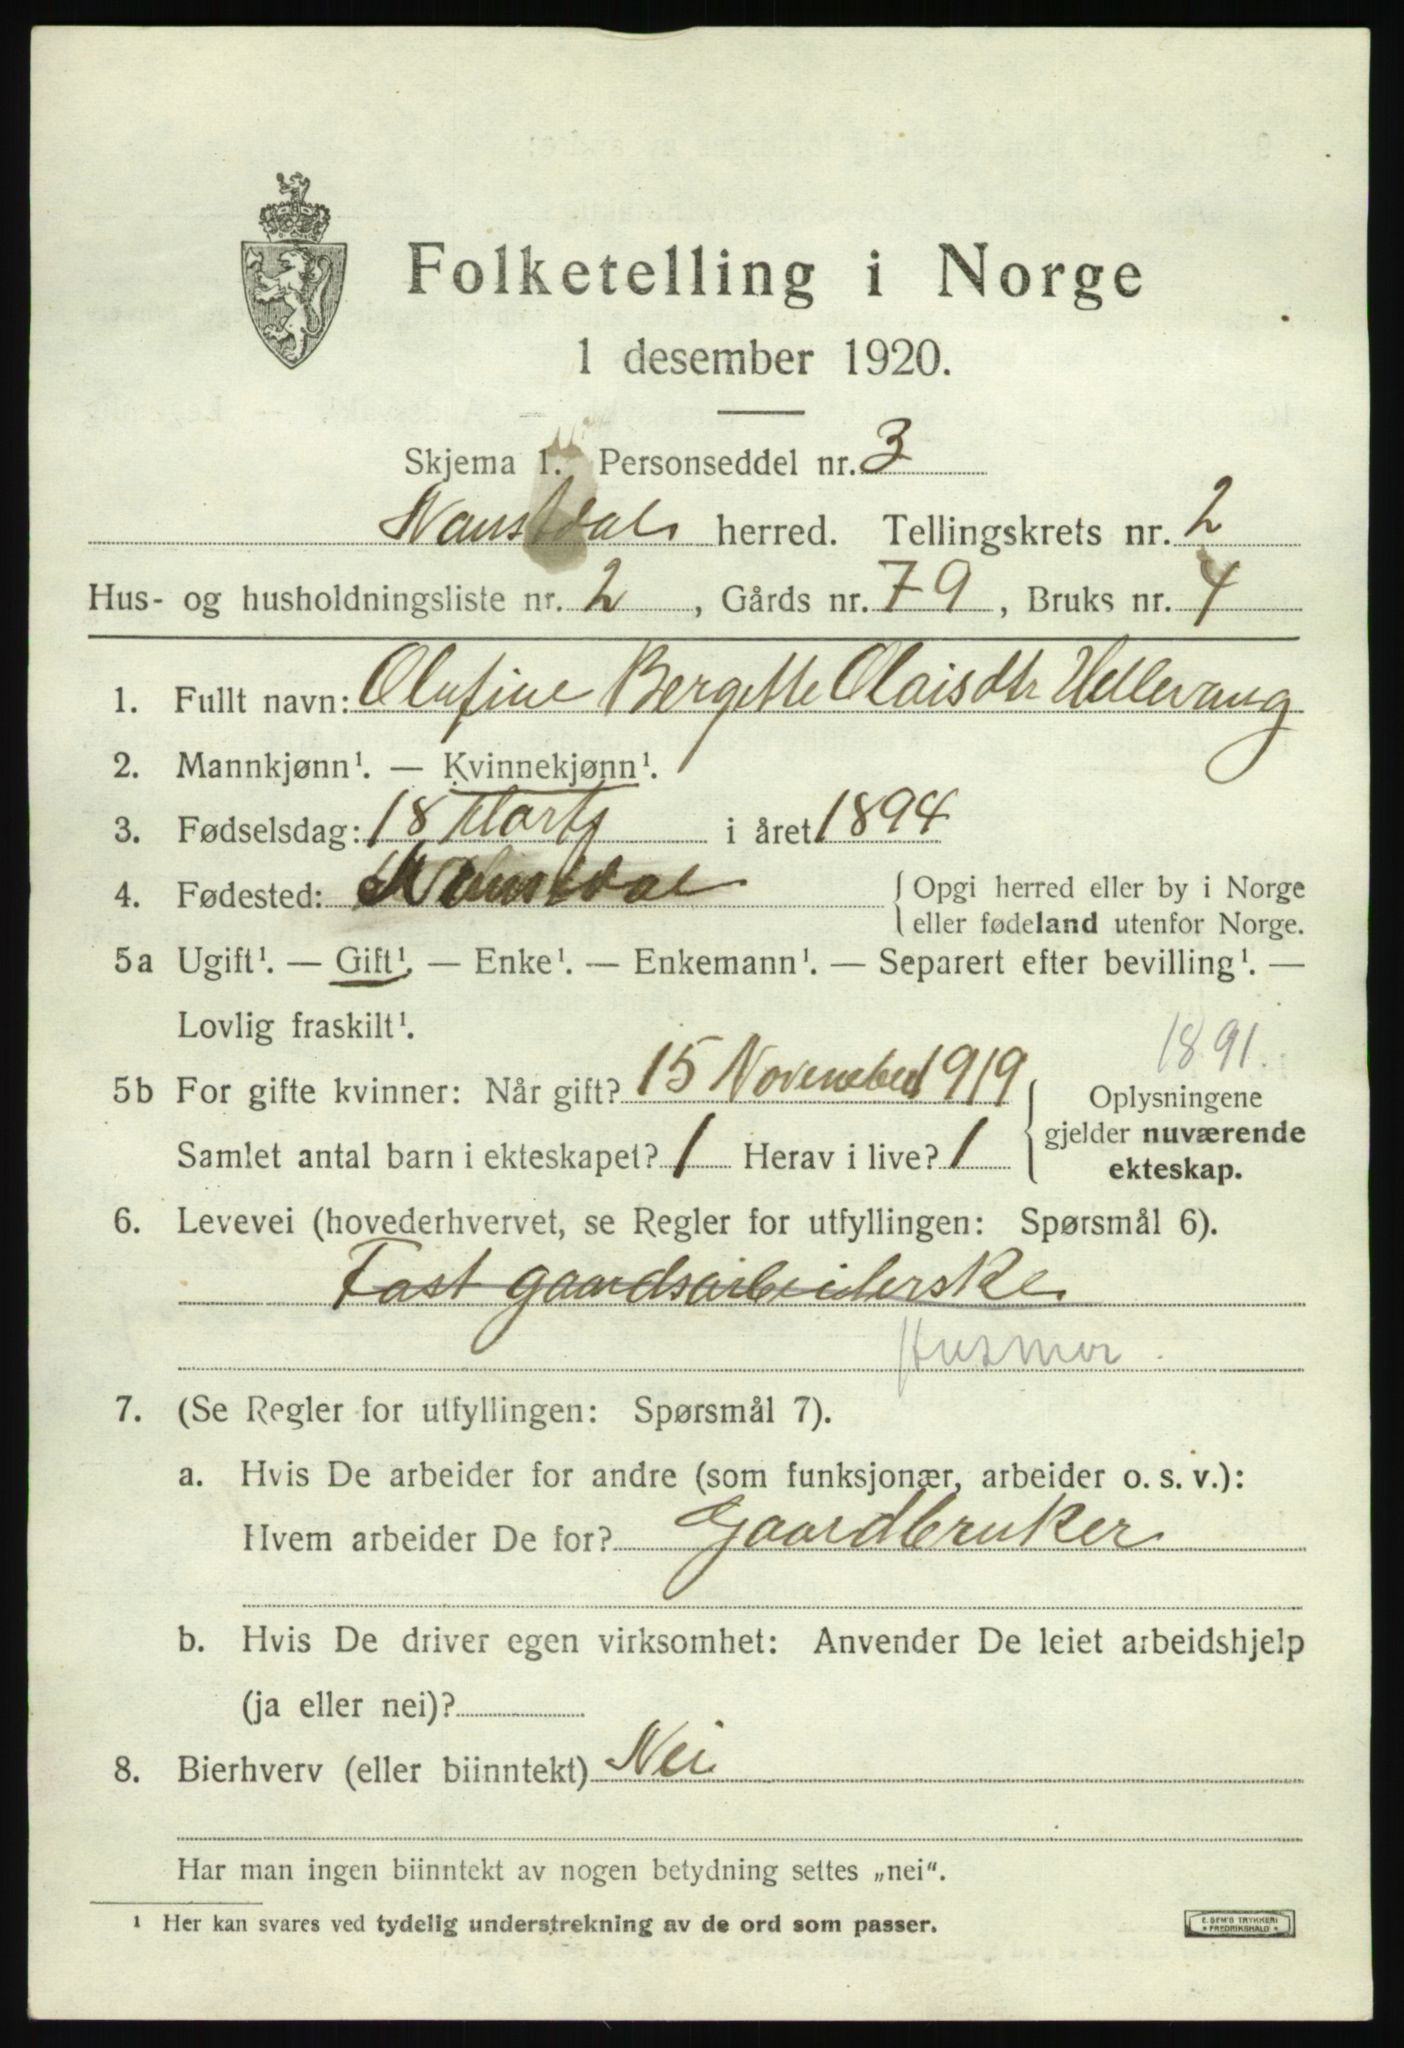 Folketelling i Norge
1 desember 1920.
Skjema 1. Personseddel nr. 3
Naustdal herred. Tellingskrets nr. 2
Hus- og husholdningsliste nr. 2, Gårds nr. 79, Bruks nr. 4
1. Fullt navn: Olufine Bergette Olaisdtr Hellevang
2. Mannkjønn¹. — Kvinnekjønn¹.
3. Fødselsdag: 18 Marts i året 1894
4. Fødested: Naustdal { Opgi herred eller by i Norge
eller fødeland utenfor Norge.
5a Ugift¹. — Gift¹. — Enke¹. — Enkemann¹. — Separert efter bevilling¹. —
Lovlig fraskilt¹.
1891.
5b For gifte kvinner: Når gift? 15 November 1919 { Oplysningene
gjelder nuværende
Samlet antal barn i ekteskapet? 1 Herav i live? 1
ekteskap.
6. Levevei (hovederhvervet, se Regler for utfyllingen: Spørsmål 6).
Fast gaardsarbeiderske
Husmor.
7. (Se Regler for utfyllingen: Spørsmål 7).
a. Hvis De arbeider for andre (som funksjonær, arbeider o. s. v.):
Hvem arbeider De for? Gaardbruker
b. Hvis De driver egen virksomhet: Anvender De leiet arbeidshjelp
(ja eller nei)?
8. Bierhverv (eller biinntekt) Nei
Har man ingen biinntekt av nogen betydning settes „nei“.
¹ Her kan svares ved tydelig understrekning av de ord som passer.
E. SEM'S TRYKKERI
FREDRIKSHALD